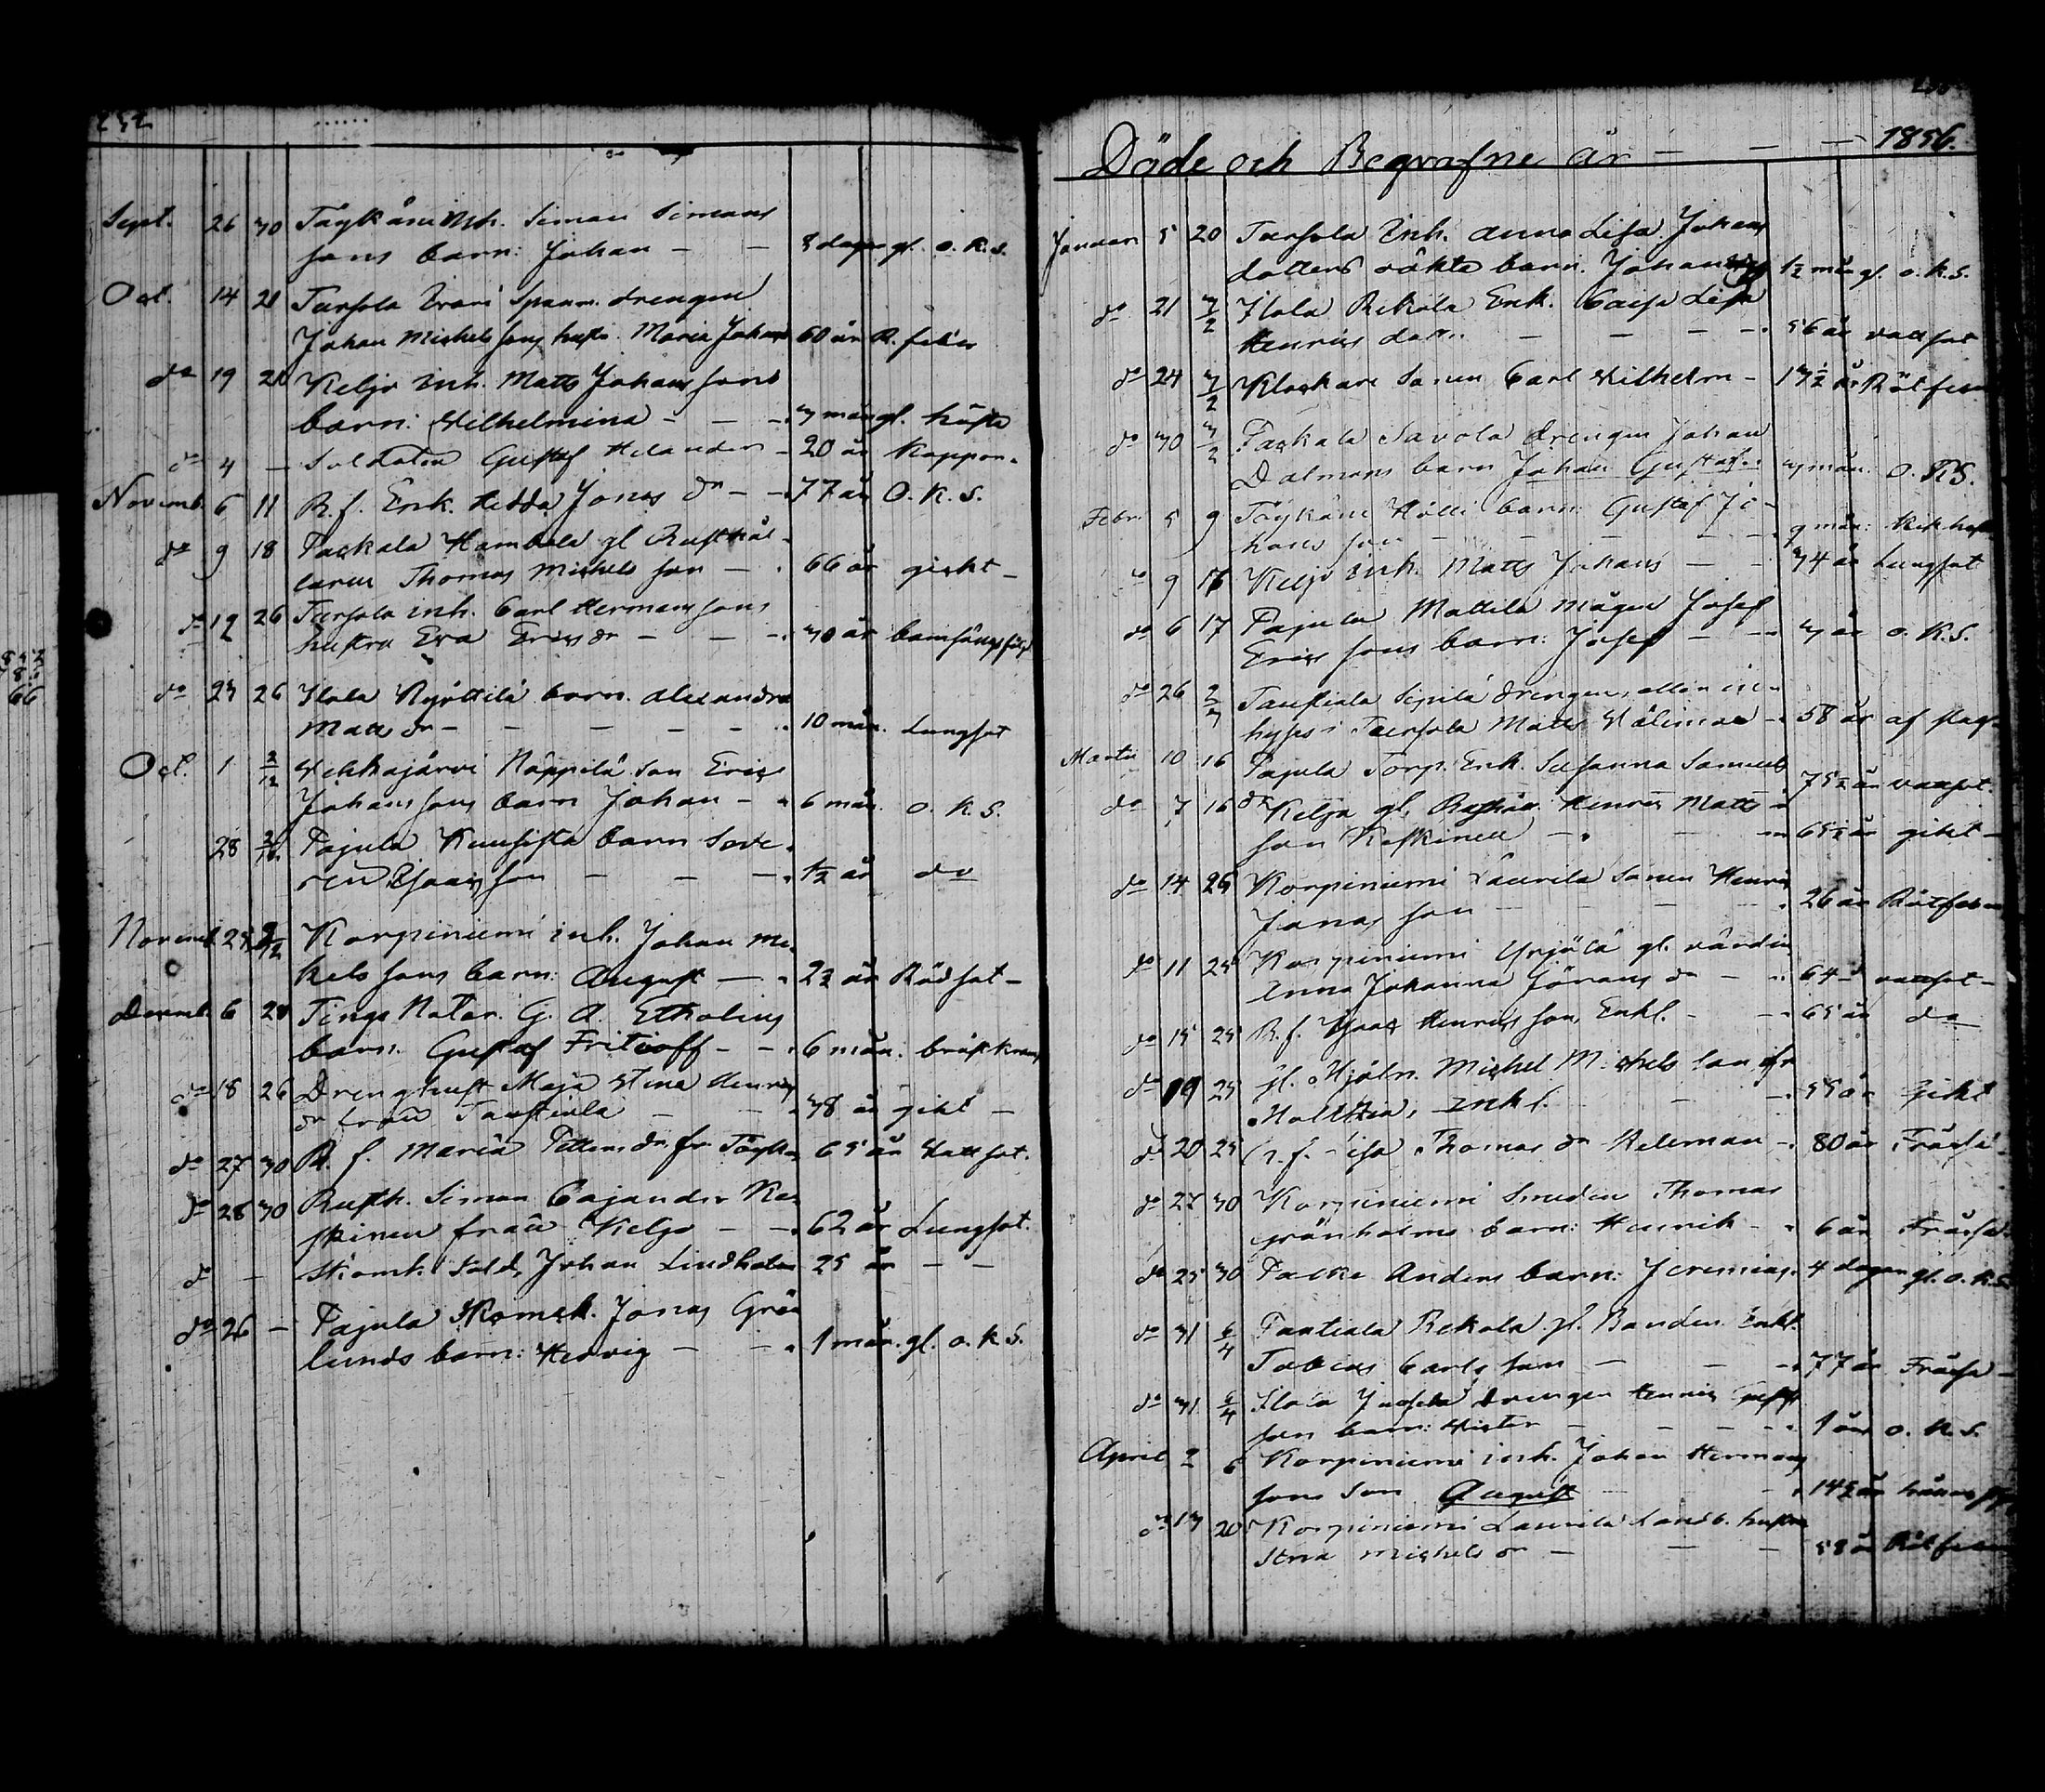 252
Sept. 26 30 Täykäri Inh. Simon Simons
sons barn: Johan — — 8 dagar gl. o. k. s.
Oct. 14 21 Tursola drengen
Johan Michelssons hustr. Maria Johans 60 år R. feber
do 19 21 Keljo Inh. Matts Johanssons
barn: Wilhelmina — — 3 mån gl. hosta
do 4 — Soldaten Gustaf Helander — 20 år Koppor.
Novemb. 6 11 R. f. Enk. Hedda Jonas dr — — 77 år O. K. S.
do 9 18 Packala Hambela gl Rusthål-
laren Thomas Michels son — 66 år gickt —
do 12 26 Tursola inh. Carl Hermanssons
hustru Eva Erics dr — — 30 år barnsäng
do 23 26 Ilola barn. Alexandra
Matts dr — — — — 10 mån. Lungsot
Oct. 1 2/12 Wehkajärvi Näppilä Son Erics
Johanssons barn Johan — 6 mån. o. k. s.
28 2/12 Pajula Kuusista barn Seve-
rin Isaacsson — — — 1/2 år do
Novemb. 25 2/12 Korpiniemi inh. Johan Mi-
kelssons barn: August — 2 1/2 år Rödsot —
Decemb. 6 21 Tings Notar. G. A. Etholens
barn. Gustaf Fritioff — — 6 mån: bröstkramp
do 18 26 Drenghust Maja Stina Henrics
dr från Tautiala — — 38 år gikt —
do 27 30 R. f. Maria Petters dr fr Täyk 65 år Wattsot.
do 28 30 Rusth. Simon Cajander Ke-
skinen från Keljo — — 62 år Lungsot.
do — Skomk. Sold. Johan Lindholm 25 år — —
do 26 — Pajula Skomak. Jonas Grön
lunds barn: Hedvig — — 1 mån. gl. o. k. S.
Döde och Begrafne år — — — 1856.
Januari 5 20 Tursola Inh. Anna Lisa Johans
dotters oäkta barn. Johannes 1/2 mån gl. o. k. s.
do 21 3/2 Ilola Rekola Enk. Caisa Lisa
Henrics dotter — — — 56 år vattsot
do 24 3/2 Klockare Sonen Carl Wilhelm — 13 1/2 år Rötfeber
do 30 3/2 Packala Savola drengen Johan
Dalmans barn Johan Gustaf. 3 mån: O. KS.
Febr. 5 9 Täykäri Hölli barn: Gustaf Jo-
hans son — — — — 9 mån: kikhosta
do 9 16 Keljo Inh. Matts Johans — — 34 år Lungsot
do 6 17 Pajula Mattila mågen Josef
Erics sons barn: Josef — — 3 år o. K. S.
do 26 2/3 Tautiala Sipilä drengen,
hyses i Tursola Matts Wälimaa — 58 år af slag.
Martii 10 16 Pajula Torp. Enk. Susanna Samuels
dr 75 1/2 år vattsot.
do 7 16 Keljo gl. Rusthål. Henric Matts
son Keskinen — — — 65 1/2 år gikt —
do 14 25 Korpiniemi Laurila Sonen Henric
Jonas son — — — 26 år Rötfeber
do 11 25 Korpiniemi Yrjölä gl. värdin
Anna Johanna Jörans dr — 64 — vattsot —
do 15 25 R. f. Isaac Henricsson, Enkl. — 65 år do
do 19 25 gl. Mjöln. Michel Michels son fr
Enkl. — — 55 år gikt
do 20 25 R. f. Lisa Thomas dr Heleman — 80 år Fräsel
do 27 30 Korpiniemi Smeden Thomas
Grönholms barn: Henrik — 6 år Fräsel
do 25 30 Packa Anders barn: Jeremias. 4 dagar gl. o. k. S.
do 31 6/4 Tautiala Rekola gl. Bonden Enkl.
Tobias Carls son — — 77 år Fräsel —
do 31 6/4 Ilola drengen Henric
son barn: Wictor — — — 1 år o. k. s.
April 2 6 Korpiniemi inh. Johan Hermans
sons Son August — — 14 1/2 år
do 13 20 Korpiniemi Laurila Landb. hustru
Stina Michels dr — — — 58 år Rötfeber